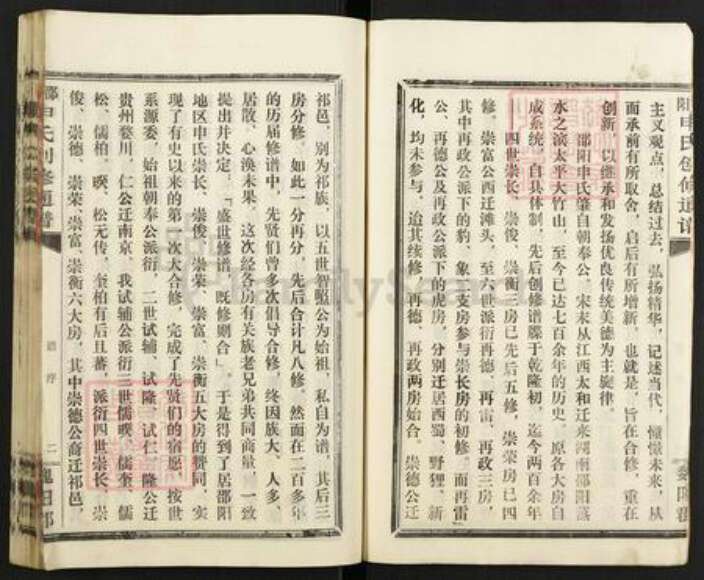 主义观点，总结过去，弘扬精华，记述当代，憧憬未来，从
而承前有所取舍，启后有所增新。也就是，旨在合修，重在
创新，以继承和发扬优良传统美德为主旋律。
邵阳申氏肇自朝奉公，宋末从江西太和迁来湖南邵阳蒸
水之滨太平大竹山，至今已达七百余年的历史。原各大房自
成系统，自具体制，先后创修谱牒于乾隆初，迄今两百余年
四世崇长、崇俊、崇衡三房已先后五修，崇荣房已四
修，崇富公西迁滩头，至六世派衍再德、再雷、再政三房，
其中再政公派下的豹、象二支房参与崇长房的初修，而再雷
公、再德公及再政公派下的虎房，分别迁居西蜀、野狸、新
化，均未参与。迨其续修，再德、再政两房始合。崇德公迁
祁邑，别为祁族，以五世智聪公为始祖，私自为谱，其后三
房分修。如此一分再分，先后合计凡八修。然而在二百多年
的历届修谱中，先贤们曾多次倡导合修，终因族大、人多、
居散，心涣未果。这次经各房有关族老兄弟共同商量，一致
提出并决定，「盛世修谱，既修则合」。于是得到了居邵阳
地区申氏崇长、崇俊、崇荣、崇富、崇衡五大房的赞同，实
现了有史以来的第一次大合修，完成了先贤们的宿愿。按世
系源委，始祖朝奉公派衍，二世试辅、试隆、试仁，隆公迁
贵州婺川，仁公迁南京，我试辅公派衍三世儒暎、儒奎、儒
松、儒柏，暎、松无传，奎柏有后且蕃，派衍四世崇长、崇
俊、崇德、崇荣、崇富、崇衡六大房，其中崇德公裔迁祁邑，
申氏创修通谱
谱序
二